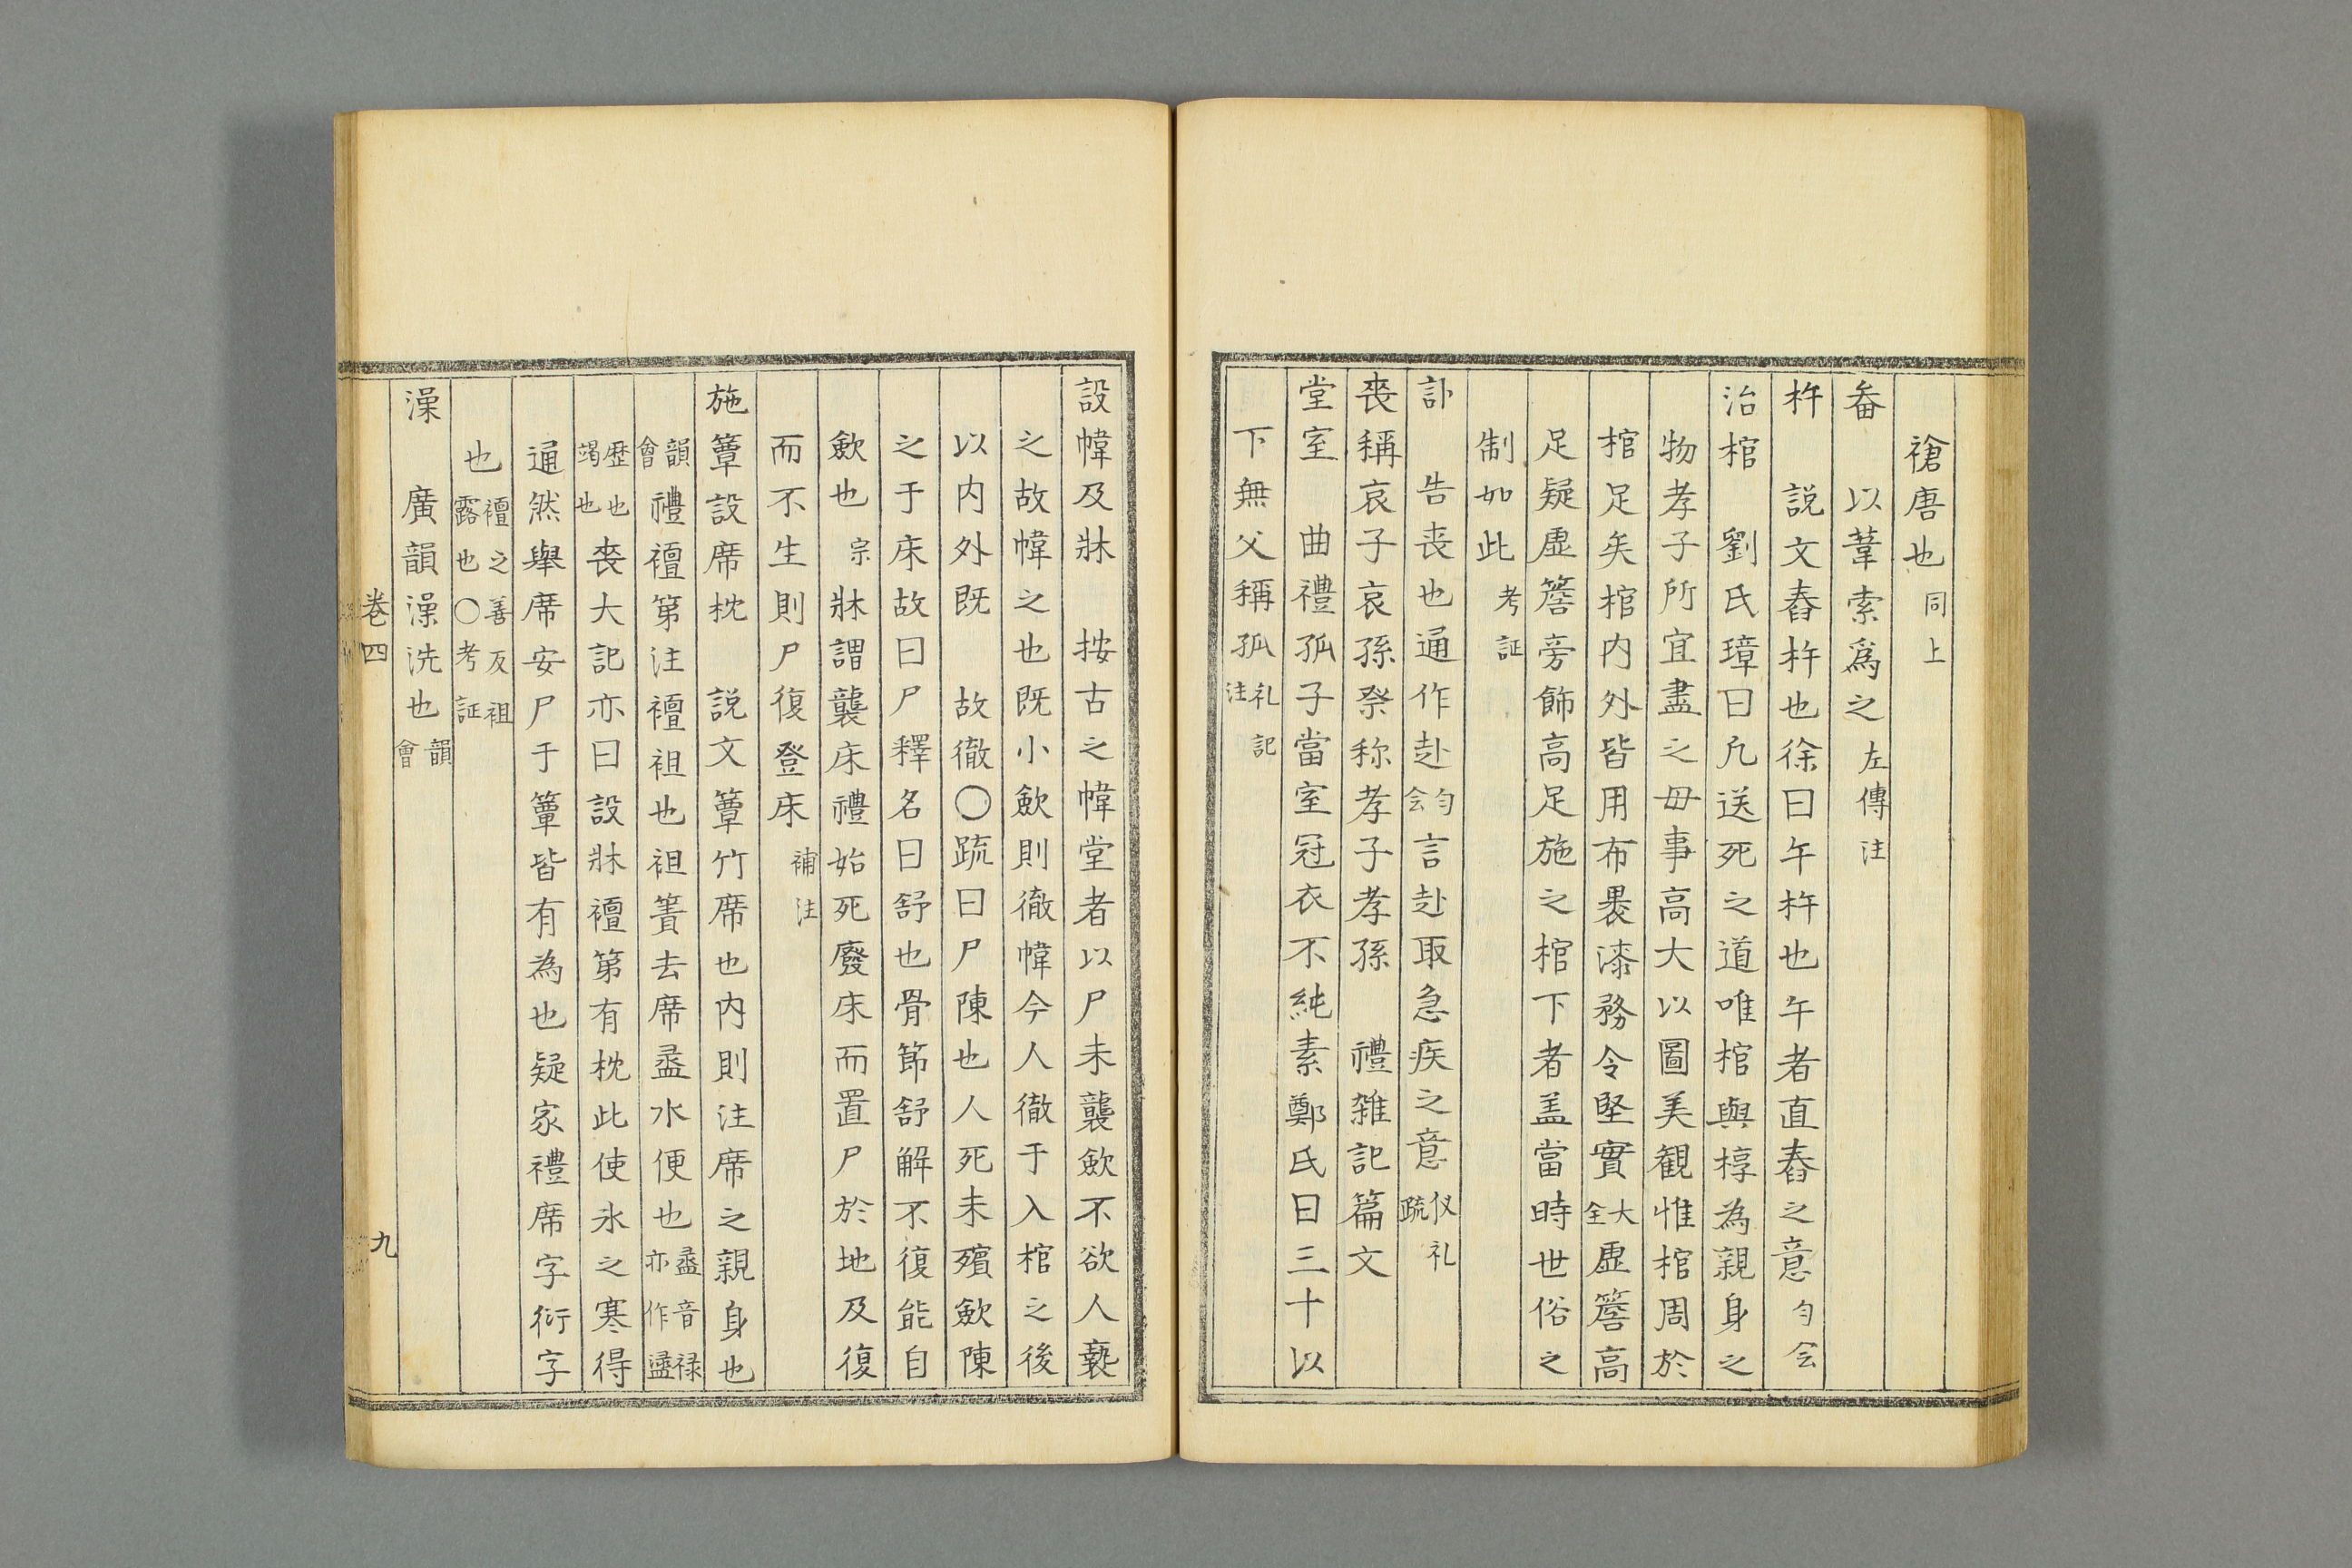 䄝唐也同上
畚　以葦索爲之左傳注
杵　説文舂杵也徐曰午杵也午者直舂之意匀会
治棺　劉氏璋曰凢送死之道唯棺與椁為親身之
物孝子所宜盡之毋事高大以圖美観惟棺周於
棺足矣棺内外皆用布褁漆務令堅實大全虛簷高
足疑虛簷旁飾高足施之棺下者盖當時世俗之
制如此考証
訃　告丧也通作赴匀会言赴取急疾之意仪礼疏
丧稱哀子哀孫祭称孝子孝孫　禮雑記篇文
堂室　曲禮孤子當室冠衣不純素鄭氏曰三十以
下無父稱孤礼記注
設幃及牀　按古之幃堂者以尸未襲歛不欲人褻
之故幃之也既小歛則徹幃今人徹于入棺之後
以内外既　故徹〇䟽曰尸陳也人死未殯歛陳
之于床故曰尸釋名曰舒也骨節舒解不復能自
歛也宗牀謂襲床禮始死廢床而置尸於地及復
而不生則尸復登床補注
施簟設席枕　説文簟竹席也内則注席之親身也
韻會禮襢第注襢袒也袒簀去席盝水便也盝音禄亦作盪
歷也竭也丧大記亦曰設牀襢第有枕此使氷之寒得
通然舉席安尸于簟皆有為也疑家禮席字衍字
也襢之善反袒露也〇考証
澡　廣韻澡洗也韻會
卷四
九